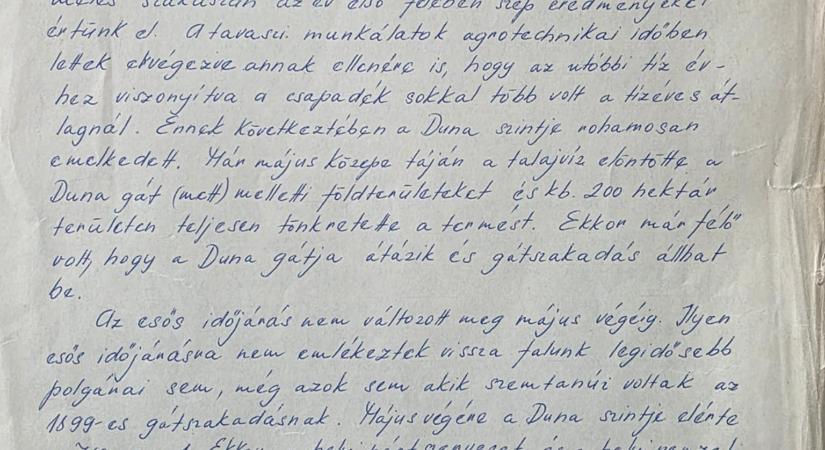 szakaszán az év első felében szép eredményeket
értünk el. A tavaszi munkálatok agrotechnikai időben
lettek elvégezve annak ellenére is, hogy az utóbbi tíz év-
hez viszonyítva a csapadék sokkal több volt a tízéves át-
lagnál. Ennek következtében a Duna szintje rohamosan
emelkedett. Már május közepe táján a talajvíz elöntötte a
Duna gát (mett) melletti földterületeket és kb. 200 hektár
területen teljesen tönkretette a termést. Ekkor már félő
volt, hogy a Duna gátja átázik és gátszakadás állhat
be.
Az esős időjárás nem változott meg május végéig. Ilyen
esős időjárásra nem emlékeztek vissza falunk legidősebb
polgárai sem, még azok sem akik szemtanúi voltak az
1899-es gátszakadásnak. Május végére a Duna szintje elérte
Ekkor a helyi